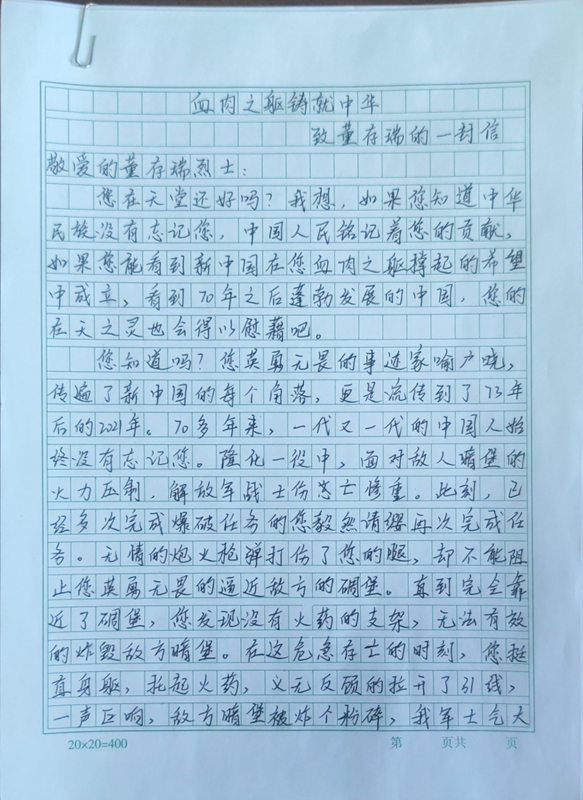 血肉之躯铸就中华
致董存瑞的一封信
敬爱的董存瑞烈士：
您在天堂还好吗？我想，如果您知道中华
民族没有忘记您，中国人民铭记着您的贡献，
如果您能看到新中国在您血肉之躯撑起的希望
中成立，看到70年之后蓬勃发展的中国，您的
在天之灵也会得以慰藉吧。
您知道吗？您英勇无畏的事迹家喻户晓，
传遍了新中国的每个角落，更是流传到了73年
后的2021年。70多年来，一代又一代的中国人始
终没有忘记您。隆化一役中，面对敌人暗堡的
火力压制，解放军战士伤亡惨重。此刻，已
经多次完成爆破任务的您毅然请缨再次完成任
务。无情的炮火枪弹打伤了您的腿，却不能阻
止您英勇无畏的逼近敌方的碉堡。直到完全靠
近了碉堡，您发现没有火药的支架，无法有效
的炸毁敌方暗堡。在这危急存士的时刻，您挺
直身躯，托起火药，义无反顾的拉开了引线，
一声巨响，敌方暗堡被炸个粉碎，我军士气大
20×20=400 第 页共 页